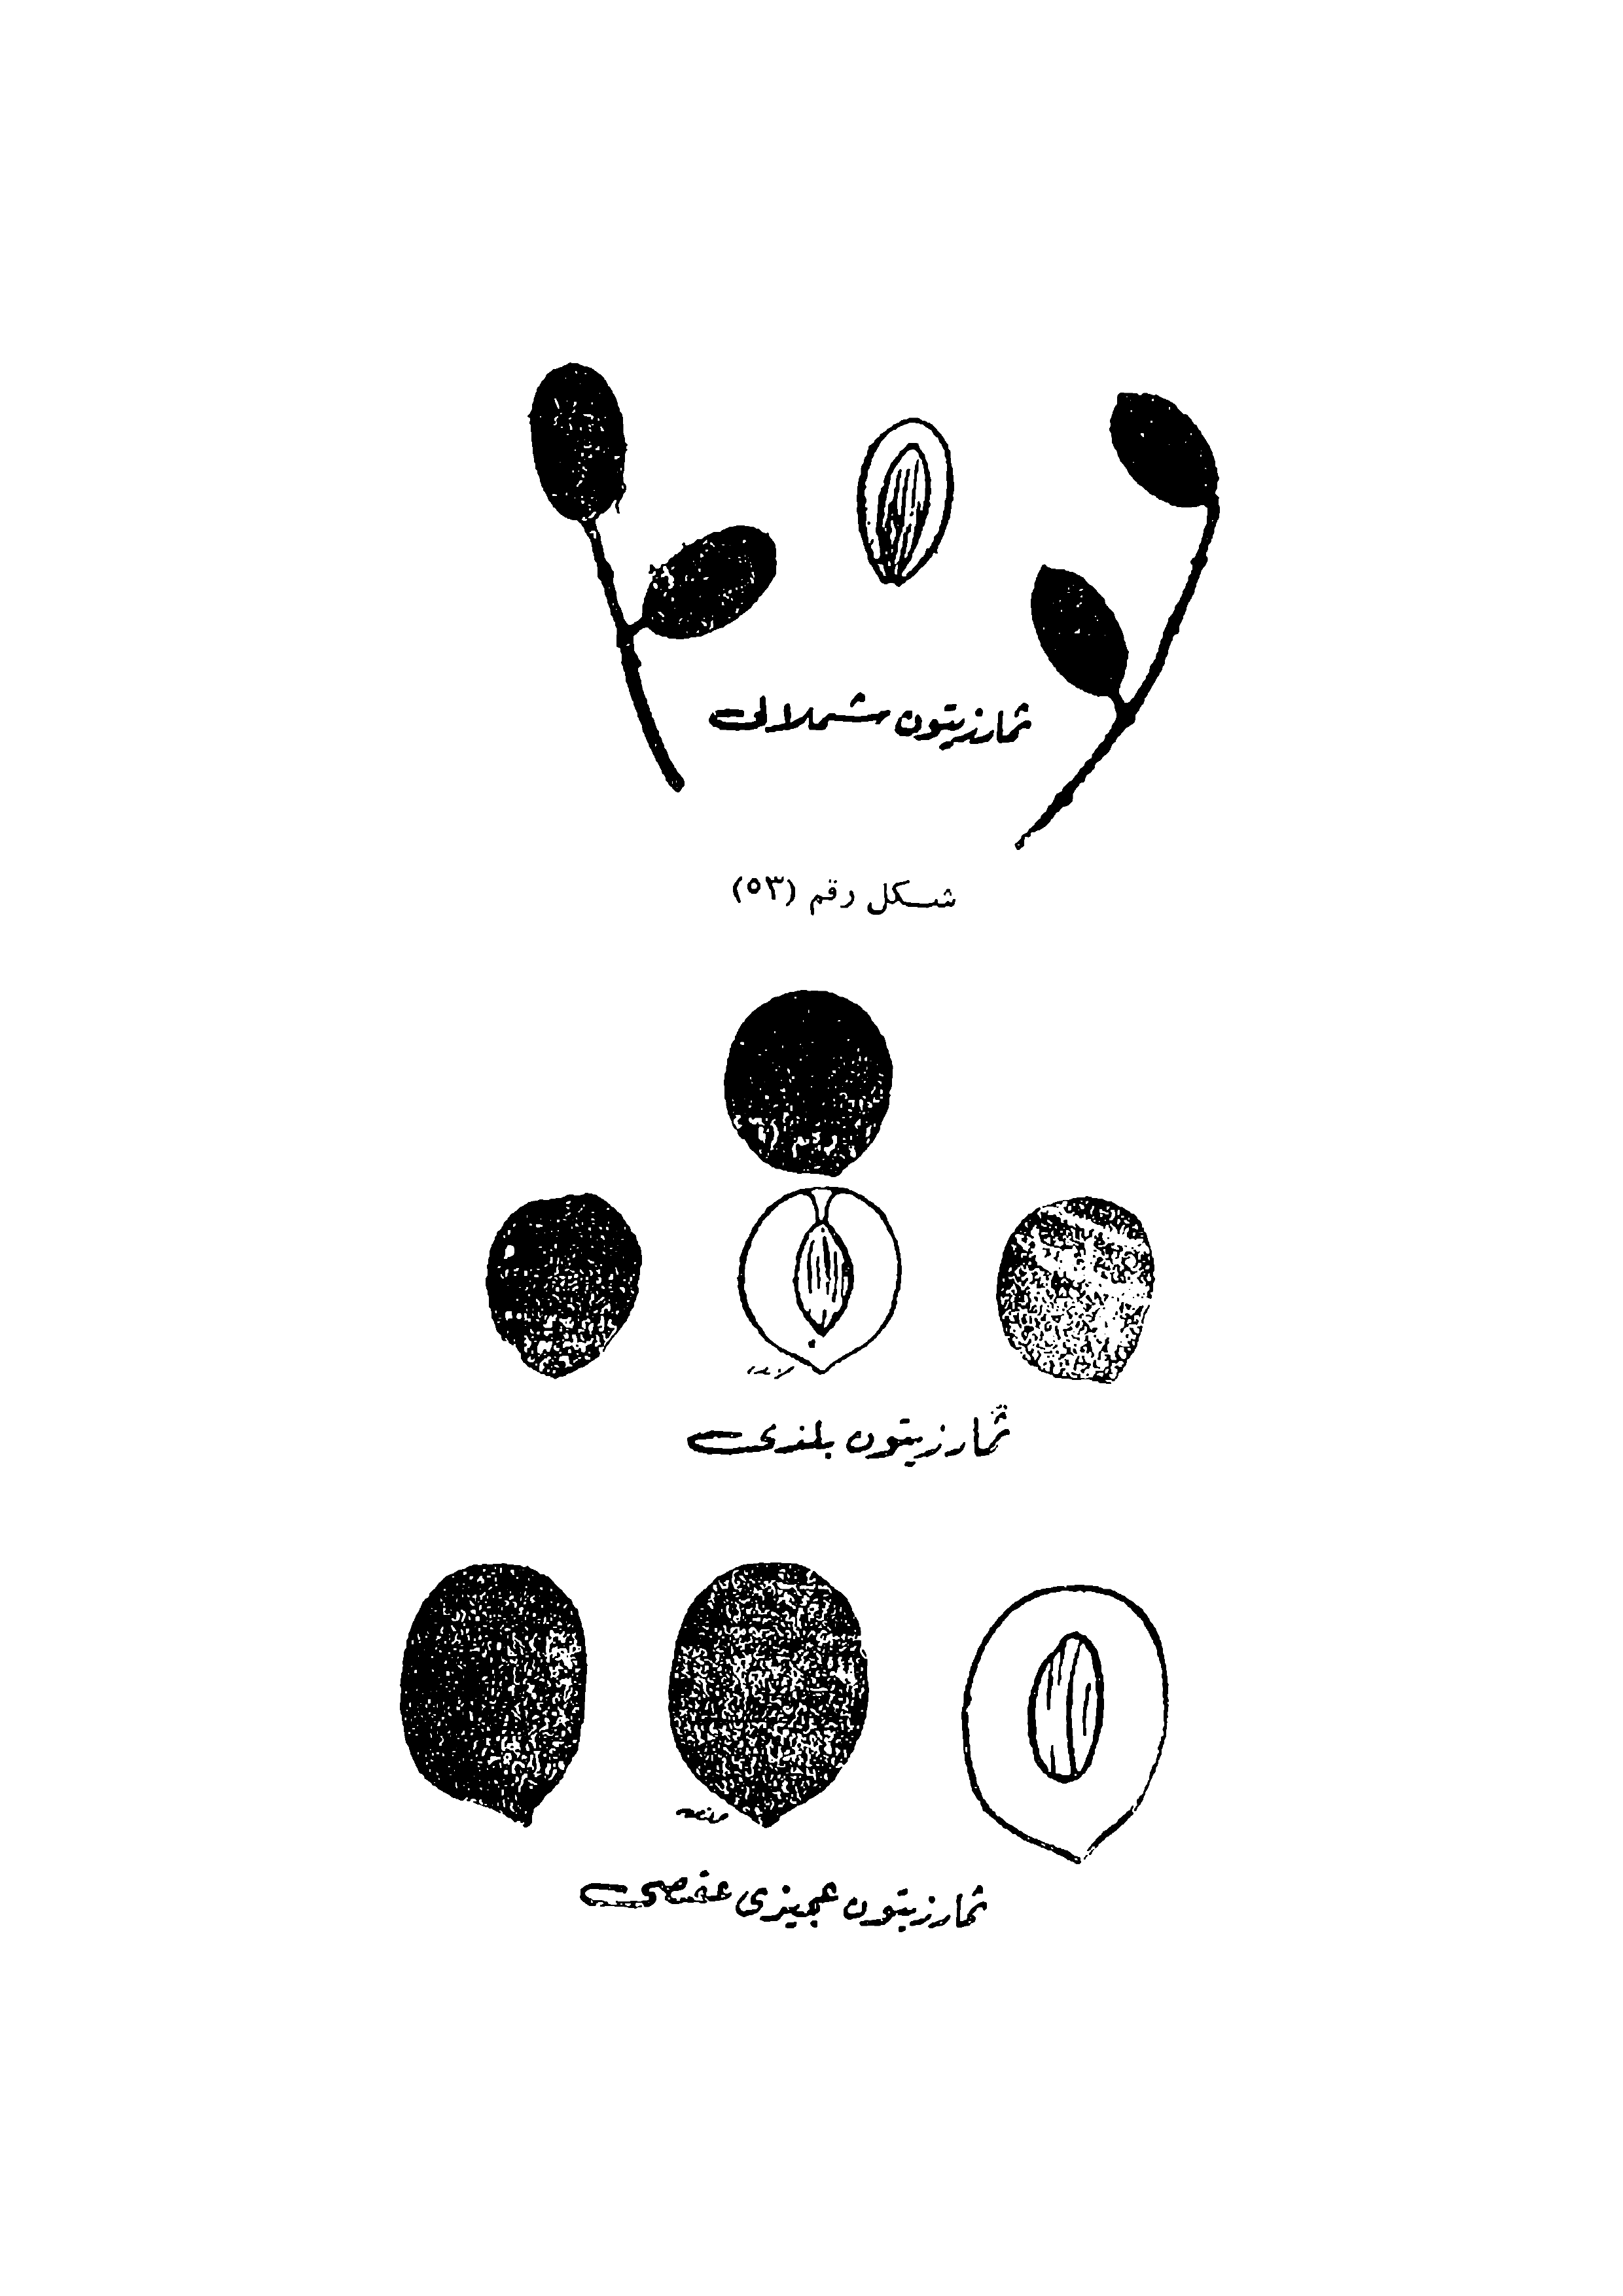 ثمار زيتون شملالى
شكل رقم (٥٣)
ثمار زيتون بلدى
ثمار زيتون عجيزى عقصى